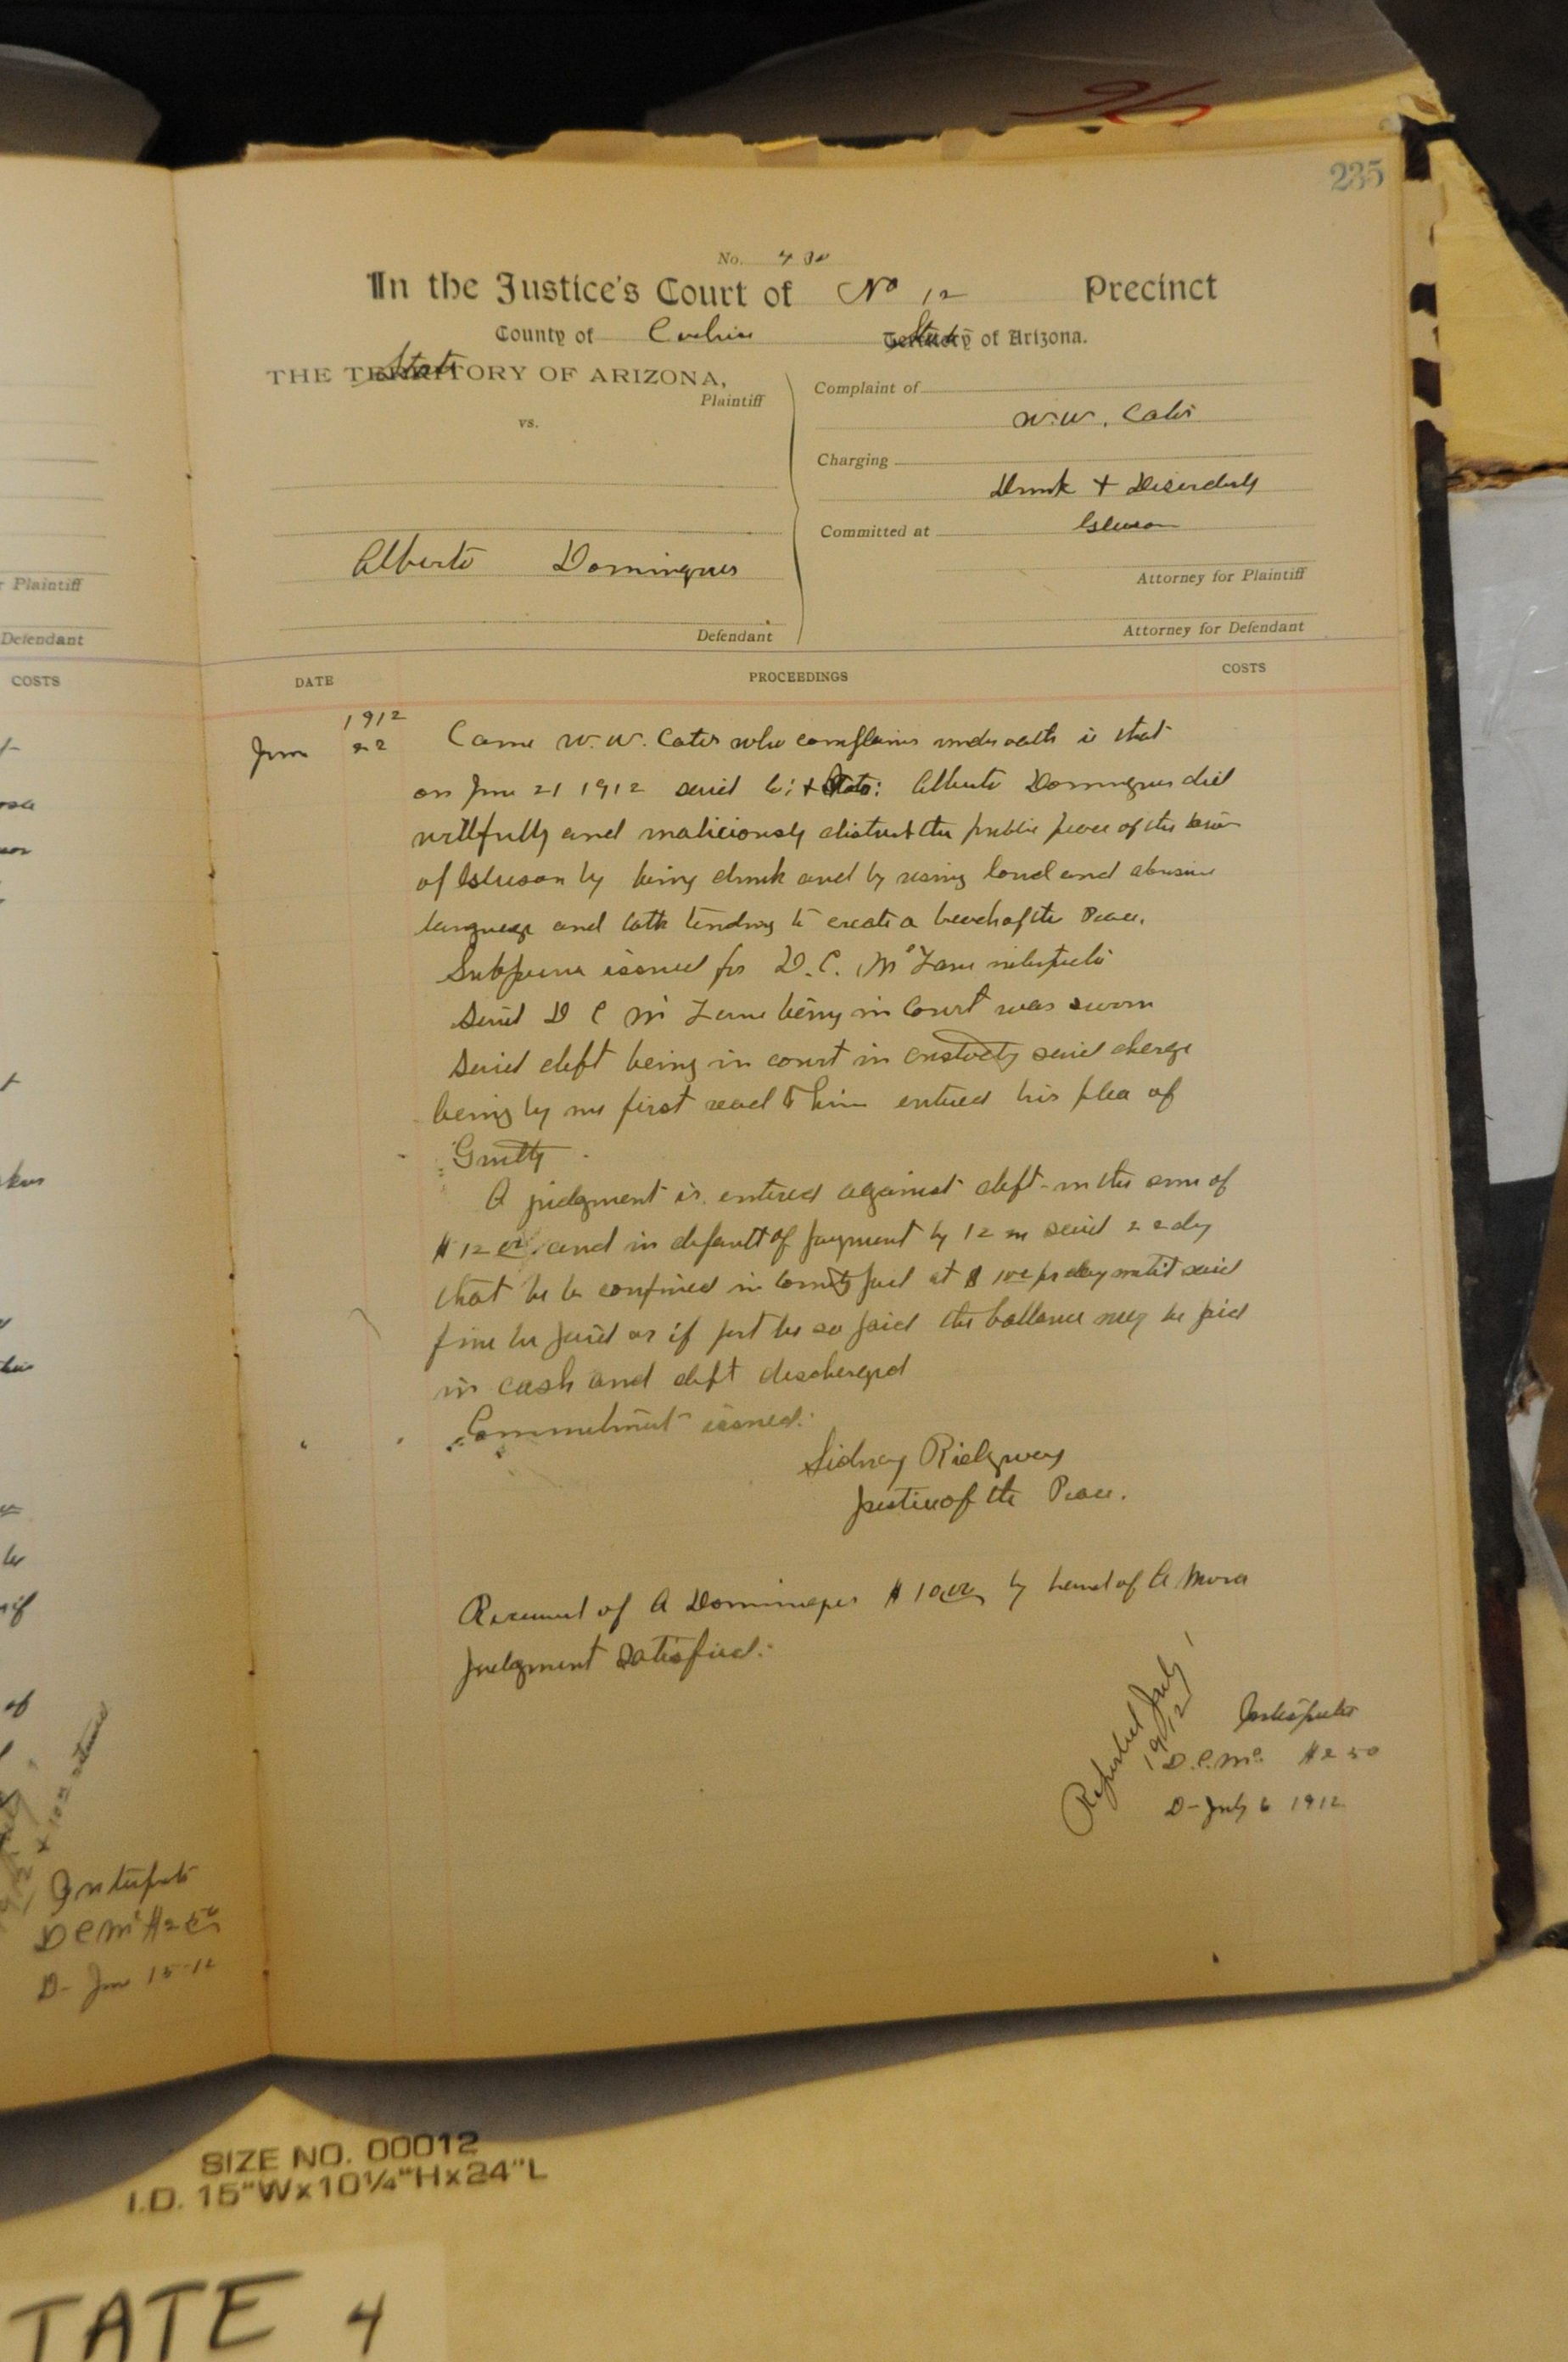 235
No. 4
In the Justice's Court of No 12 Precinct
County of Cochise State of Arizona.
THE State TERRITORY OF ARIZONA,
Plaintiff
vs.
Alberto Domingues
Defendant
Complaint of
W. W. Cates
Charging
Drunk + Disorderly
Committed at Gleeson
Attorney for Plaintiff
Attorney for Defendant
DATE PROCEEDINGS COSTS
1912
June 22 Came W. W. Cates who complains under oath that
on June 21 1912 said Co: + State: Alberto Domingues did
willfully and maliciously disturb the public peace of the town
of Gleeson by being drunk and by using loud and abusive
language and both tending to create a breach of the Peace.
Subpoena issued for D. C. Mc interpreter
Said D C Mc being in Court was sworn
Said deft being in court in custody said charge
being by me first read to him entered his plea of
Guilty.
A judgment is entered against deft in the sum of
$12 and in default of payment by 12 m said 22 day
that he be confined in County jail at $ 1 00 per day until said
fine be paid or if part be so paid the ballance may be paid
in cash and deft discharged
Commitment issued:
Sidney Ridgway
Justice of the Peace.
Received of A Domingues $ 10 by hand of A Mora
Judgment Satisfied:
Reported July 1
1912
Interpreter
D.C. Mc $2 50
D- July 6 1912
r Plaintiff
Defendant
COSTS
of
Interpreter
D C Mc $2 50
D- June 15-12
SIZE NO. 00012
I.D. 15"W x 10¼"H x 24"L
TATE 4